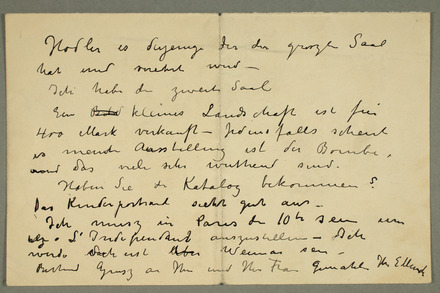 Hodler is diejenige der den groszen Saal
hat und verehrt wird –
Ich habe den zweiten Saal
Ein kleines Landschaft ist für
400 Mark verkauft – Jedenfalls scheint
es meine Ausstellung ist der Bombe,
und das viele sehr wuthend sind.
Haben Sie den Katalog bekommen?
Das Kinderportrait sieht gut aus –
Ich musz in Paris den 10te sein um
L'Independant auszustellen – Ich
werde ist Weimar sein –
Grusz an Ihn und Ihre Frau Gemahlin Ihr